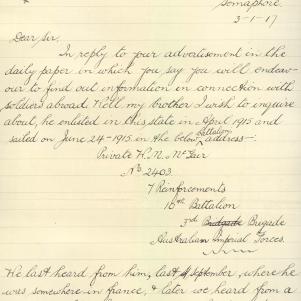 Semaphore.
3-1-17
Dear Sir,
In reply to your advertisement in the
daily paper in which you say you will endeav-
our to find out information in connection with
soldiers abroad. Well my brother I wish to inquire
about, he enlisted in this state in April 1915 and
sailed on June 24-1915 in the below battalion address:-
Private H. M.
No 2403
7 Reinforcements
16th Battalion
3rd Brigade Brigade
Australian Imperial Forces.
We last heard from him, last 4 September, where he
was somewhere in france, & later we heard from a